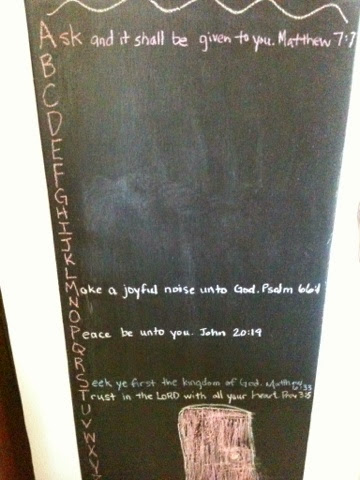 Ask and it shall be given to you. Matthew 7:7
B
C
D
E
F
G
H
I
J
K
L
Make a joyful noise unto God. Psalm 66:1
N
O
Peace be unto you. John 20:19
Q
R
Seek ye first the kingdom of God. Matthew 6:33
Trust in the LORD with all your heart. Prov 3:5
U
V
W
X
Y